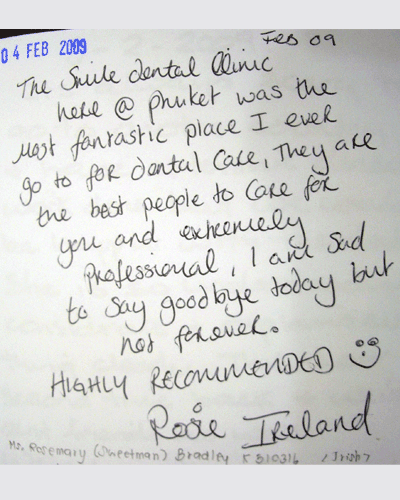 04 FEB 2009
FEB 09
The Smile dental Clinic
here @ phuket was the
most fantastic place I ever
go to for dental care, They are
the best people to care for
you and extremely
professional, I am sad
to say goodbye today but
not forever.
HIGHLY RECOMMENDED
Rosie IRELAND
Ms. Rosemary (Sheetman) Bradley 5310316 (Irish)